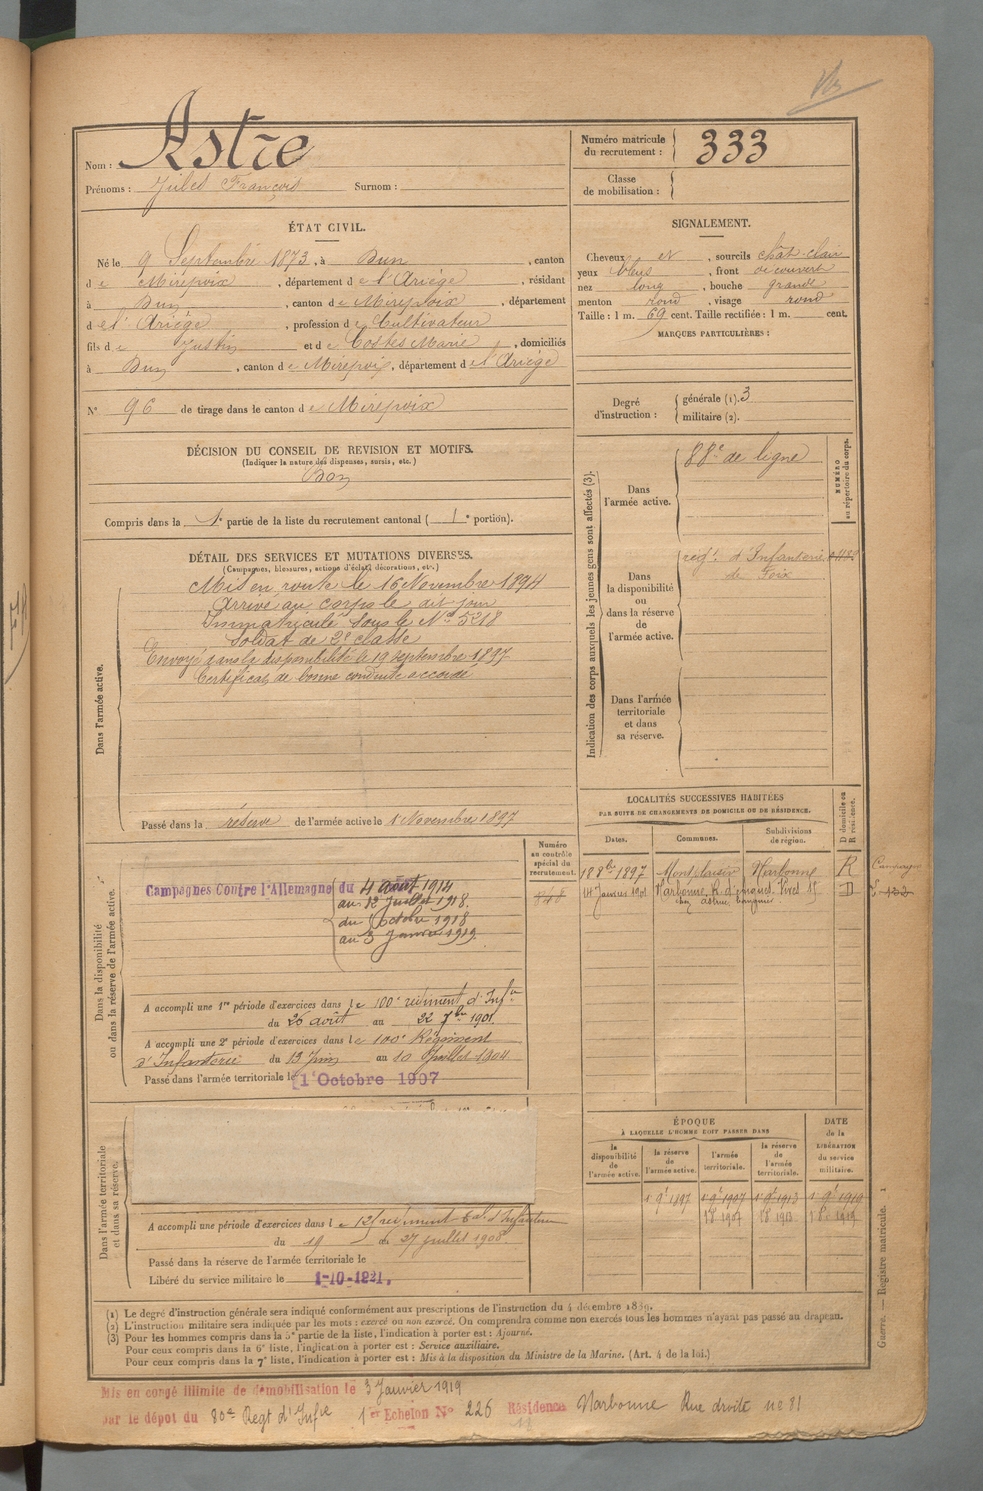 Nom : Astre
Prénoms : Jules François Surnom :
Numéro matricule
du recrutement : 333
Classe
de mobilisation :
ÉTAT CIVIL.
Né le 9 Septembre 1873, à Dun, canton
de Mirepoix, département de l'Ariège, résidant
à Dun, canton de Mirepoix, département
de l'Ariège, profession de Cultivateur
fils de Justin et de Costes Marie, domiciliés
à Dun, canton de Mirepoix, département de l'Ariège
N° 96 de tirage dans le canton de Mirepoix
SIGNALEMENT.
Cheveux et, sourcils chât-clair
yeux bleus, front découvert
nez long, bouche grande
menton rond, visage rond
Taille : 1 m. 69 cent. Taille rectifiée : 1 m. cent.
MARQUES PARTICULIÈRES :
Degré
d'instruction :
générale (1). 3
militaire (2).
DÉCISION DU CONSEIL DE REVISION ET MOTIFS.
(Indiquer la nature des dispenses, sursis, etc.)
Bon
Compris dans la 1e partie de la liste du recrutement cantonal ( 1e portion).
DÉTAIL DES SERVICES ET MUTATIONS DIVERSES.
(Campagnes, blessures, actions d'éclat, décorations, etc.)
Dans l'armée active.
Mis en route le 16 Novembre 1894
Arrivé au corps le dit jour
Immatriculé sous le No 5218
Soldat de 2e classe
Envoyé dans la disponibilité le 19 Septembre 1897
Certificat de bonne conduite accordé
Passé dans la réserve de l'armée active le 1 Novembre 1897
Indication des corps auxquels les jeunes gens sont affectés (3).
NUMÉRO
au répertoire du corps.
Dans
l'armée active.
88e de ligne
Dans
la disponibilité
ou
dans la réserve
de
l'armée active.
regt d'Infanterie
de Foix
Dans l'armée
territoriale
et dans
sa réserve.
Dans la disponibilité
ou dans la réserve de l'armée active.
Numéro
au contrôle
spécial du
recrutement.
Campagnes Contre l'Allemagne du 4 août 1914
au 12 Juillet 1918.
du Octobre 1918
au 3 Janvier 1919.
A accompli une 1re période d'exercices dans le 100e régiment d'Infie
du 26 août au 22 7bre 1901.
A accompli une 2e période d'exercices dans le 100e Régiment
d'Infanterie du 13 Juin au 10 Juillet 1904
Passé dans l'armée territoriale le 1 Octobre 1907
LOCALITÉS SUCCESSIVES HABITÉES
PAR SUITE DE CHANGEMENTS DE DOMICILE OU DE RÉSIDENCE.
Dates. Communes. Subdivisions
de région. D domicile ou
R résidence.
18 8bre 1897 Narbonne R
14 Janvier 1901 Narbonne, D
Dans l'armée territoriale
et dans sa réserve.
A accompli une période d'exercices dans le
du 19 au 27 juillet 1908
Passé dans la réserve de l'armée territoriale le
Libéré du service militaire le 1-10-1921.
ÉPOQUE
À LAQUELLE L'HOMME DOIT PASSER DANS
la
disponibilité
de
l'armée active.
la réserve
de
l'armée active.
l'armée
territoriale.
la réserve
de
l'armée
territoriale.
DATE
de la
LIBÉRATION
du service
militaire.
1 9e 1897 1 9e 1907 1 9e 1913 1 9e 1919
1 8e 1907 1 8e 1913 1 8e 1919
(1) Le degré d'instruction générale sera indiqué conformément aux prescriptions de l'instruction du 4 décembre 1889.
(2) L'instruction militaire sera indiquée par les mots : exercé ou non exercé. On comprendra comme non exercés tous les hommes n'ayant pas passé au drapeau.
(3) Pour les hommes compris dans la 5e partie de la liste, l'indication à porter est : Ajourné.
Pour ceux compris dans la 6e liste, l'indication à porter est : Service auxiliaire.
Pour ceux compris dans la 7e liste, l'indication à porter est : Mis à la disposition du Ministre de la Marine. (Art. 4 de la loi.)
Guerre. — Registre matricule. 1
Mis en congé illimité de démobilisation le 3 Janvier 1919
par le dépot du 80e Regt d'Infie 1er Echelon N° 226 Résidence Narbonne Rue droite no 81